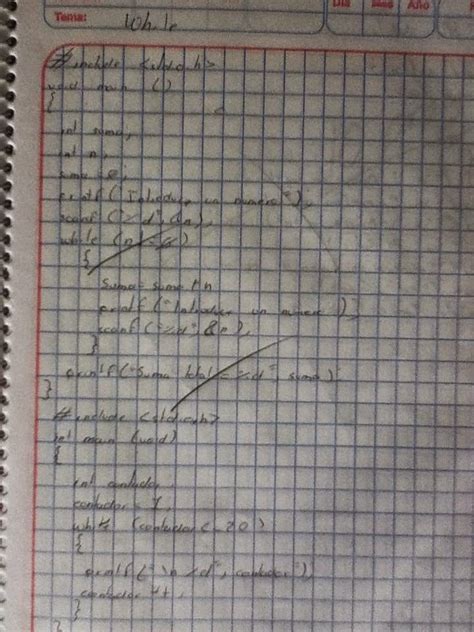 Dia Mes Año
Tema: While
#include <stdio.h>
void main ()
{
int suma,
int n,
suma = 0,
printf("Introducir un numero"),
scanf("%d" &n),
while (n
{
suma = suma + n
printf ("Introducir un numero"),
scanf ("%d", &n),
}
printf("Suma total = %d", suma)
}
#include <stdio.h>
int main (void)
{
int contador
contador = 1,
while (contador <= 20)
{
printf("\n %d", contador"),
contador ++,
}
}